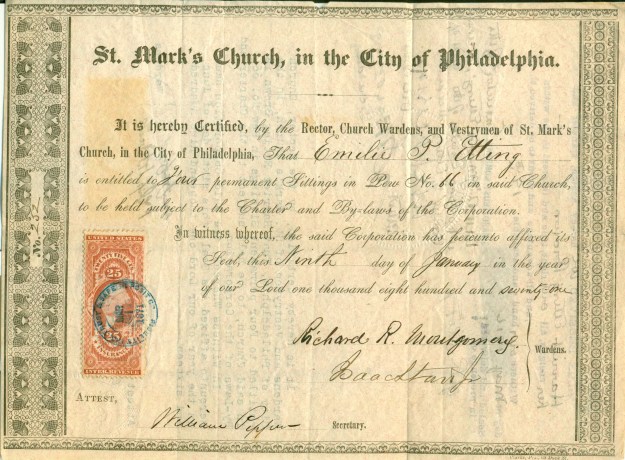 St. Mark's Church, in the City of Philadelphia.
It is hereby Certified, by the Rector, Church Wardens, and Vestrymen of St. Mark's
Church, in the City of Philadelphia, That Emilie T. Etting
is entitled to Four permanent Sittings in Pew No. 66 in said Church,
to be held subject to the Charter and By-laws of the Corporation.
In witness whereof, the said Corporation has hereunto affixed its
Seal, this Ninth day of January in the year
of our Lord one thousand eight hundred and seventy-one
No. 252
UNITED STATES
25
INTER. REVENUE
Richard R. Montgomery.
Wardens.
Attest,
William Pepper
Secretary.